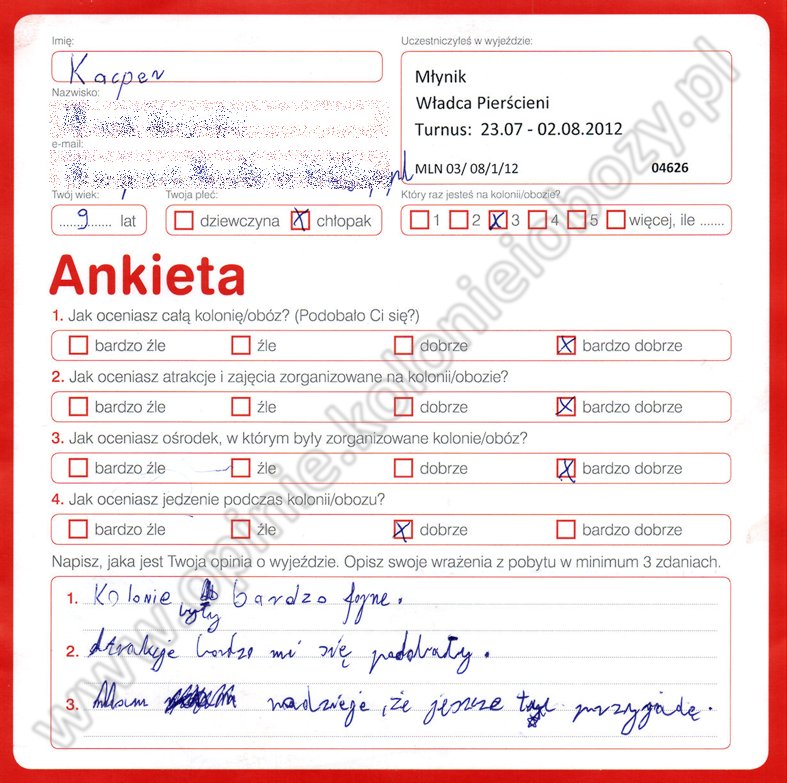 Imię:
Kacper
Uczestniczyłeś w wyjeździe:
Młynik
Władca Pierścieni
Turnus: 23.07 - 02.08.2012
MLN 03/ 08/1/12 04626
Nazwisko:
e-mail:
pl
Twój wiek:
9 lat
Twoja płeć:
dziewczyna chłopak
Który raz jesteś na kolonii/obozie?
1 2 3 4 5 więcej, ile .......
Ankieta
1. Jak oceniasz całą kolonię/obóz? (Podobało Ci się?)
bardzo źle źle dobrze bardzo dobrze
2. Jak oceniasz atrakcje i zajęcia zorganizowane na kolonii/obozie?
bardzo źle źle dobrze bardzo dobrze
3. Jak oceniasz ośrodek, w którym były zorganizowane kolonie/obóz?
bardzo źle źle dobrze bardzo dobrze
4. Jak oceniasz jedzenie podczas kolonii/obozu?
bardzo źle źle dobrze bardzo dobrze
Napisz, jaka jest Twoja opinia o wyjeździe. Opisz swoje wrażenia z pobytu w minimum 3 zdaniach.
1. Kolonie były bardzo fajne.
2. Atrakcje bardzo mi się podobały.
3. Mam nadzieje, że jeszcze tu przyjadę.
www.opinie.kolonieiobozy.pl